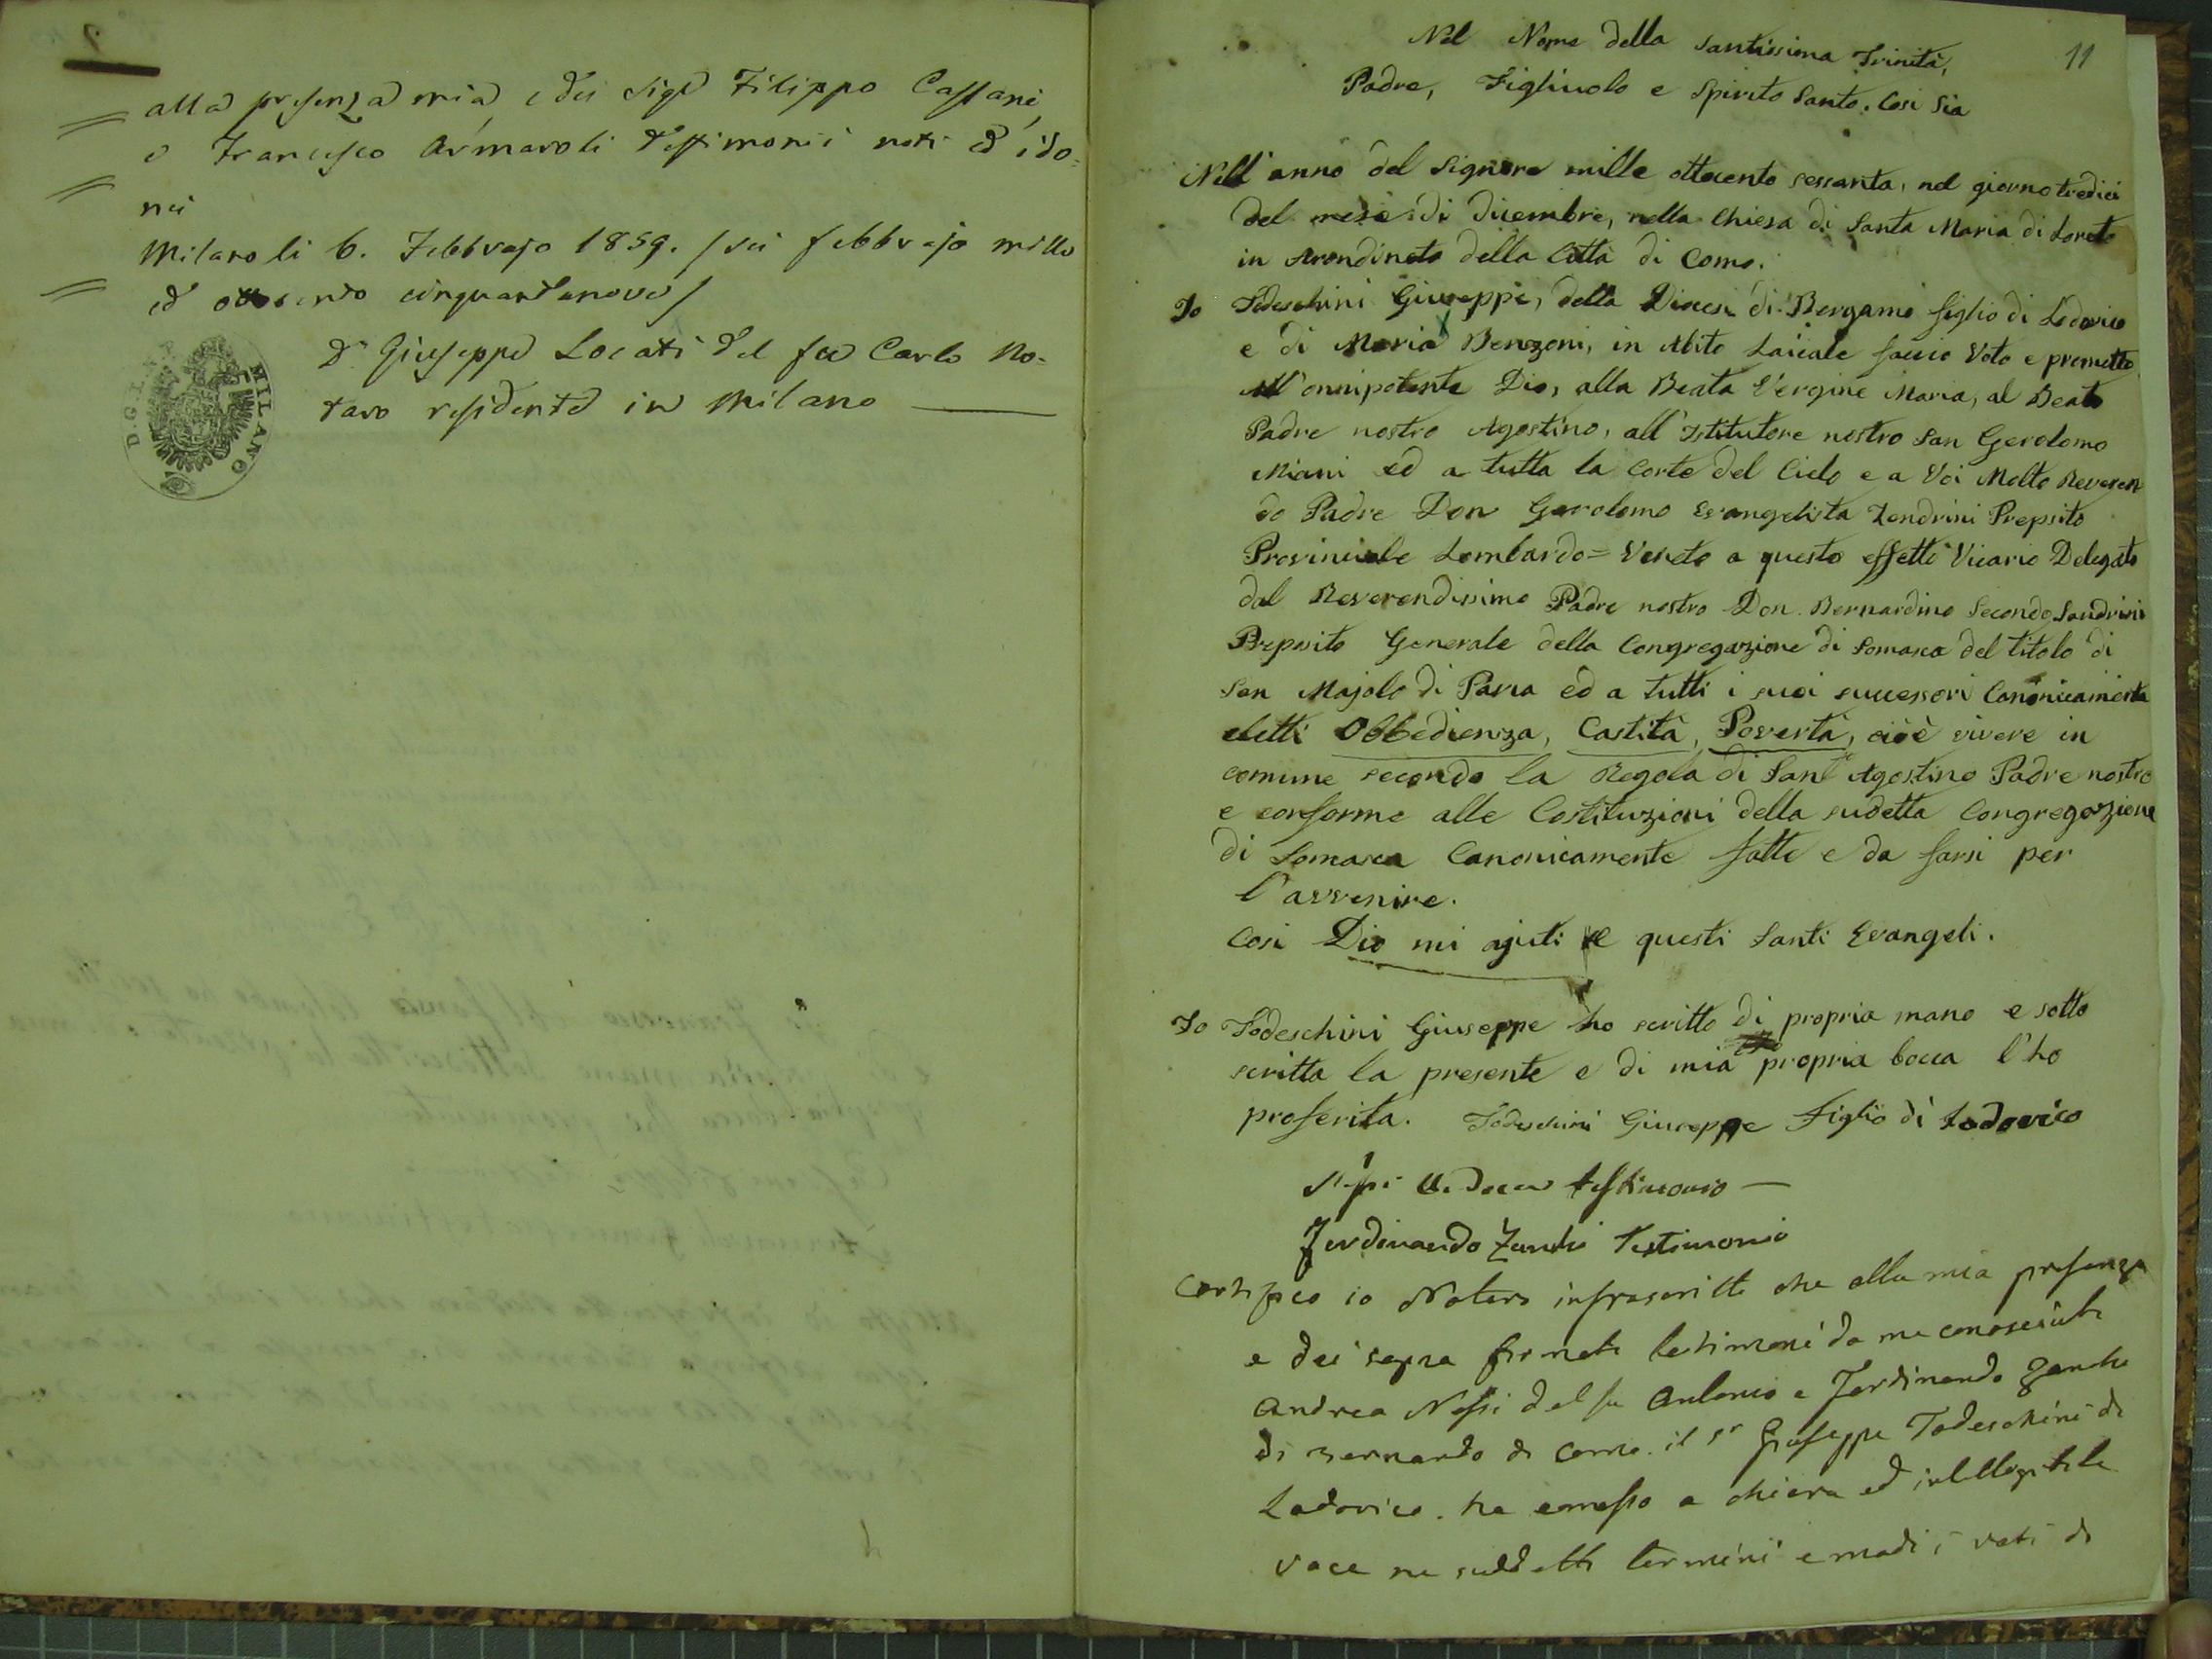 alla presenza mia e dei Sigri Filippo Cassani
e Francesco Armaroli Testimonii noti ed ido=
nei
Milano li 6. Febbrajo 1859. / sei febbrajo mille
ed ottocento cinquantanove /
Dr Giuseppe Locati del fu Carlo No=
taro residente in Milano
D.G.L.N.P. MILANO
11
Nel Nome della Santissima Trinità,
Padre, Figliuolo e Spirito Santo. Così Sia
Nell'anno del Signore mille ottocento sessanta, nel giorno tredici
del mese di dicembre, nella Chiesa di Santa Maria di Loreto
in Arondineto della Città di Como.
Io Todeschini Giuseppe, della Diocesi di Bergamo figlio di Lodovico
e di Maria Benzoni, in Abito Laicale faccio Voto e prometto
All'onnipotente Dio, alla Beata Vergine Maria, al Beato
Padre nostro Agostino, all'Istitutore nostro San Gerolomo
Miani ed a tutta la Corte del Cielo e a Voi Molto Reveren
do Padre Don Gerolomo Evangelista Zendrini Preposito
Provinciale Lombardo=Veneto a questo effetto Vicario Delegato
dal Reverendissimo Padre nostro Don Bernardino Secondo Sandrini
Preposito Generale della Congregazione di Somasca del titolo di
San Majolo di Pavia ed a tutti i suoi successori Canonicamente
eletti Obbedienza, Castità, Povertà, cioè vivere in
comune secondo la Regola di Sant'Agostino Padre nostro
e conforme alle Costituzioni della sudetta Congregazione
di Somasca Canonicamente fatte e da farsi per
l'avvenire.
Così Dio mi ajuti e questi Santi Evangeli.
Io Todeschini Giuseppe ho scritto di propria mano e sotto
scritta la presente e di mia propria bocca l'ho
proferita. Todeschini Giuseppe Figlio di Lodovico
Nessi Andrea testimonio
Ferdinando Zanchi Testimonio
Certifico io Notaro infrascritto che alla mia presenza
e dei sopra firmati testimoni da me conosciuti
Andrea Nessi del fu Antonio e Ferdinando Zanchi
di Bernardo di Como il Sr Giuseppe Todeschini di
Lodovico ha emesso a chiara ed intelligibile
voce ne suddetti termini e modi i voti di